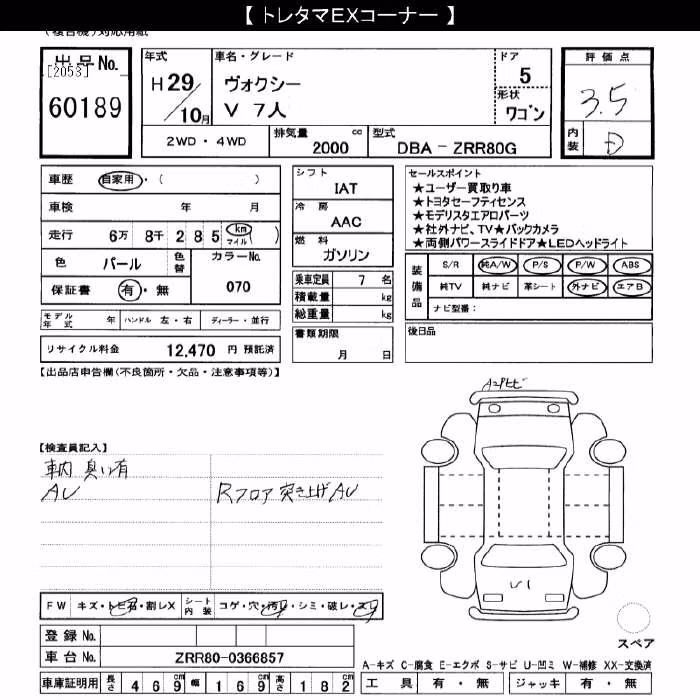 【 トレタマEXコーナー 】
(複合機)対応用紙
出品No.
[2053]
60189
年式
H29/10月
車名・グレード
ヴォクシー
V 7人
ドア
5
形状
ワゴン
評価点
3.5
内装
D
2WD・4WD
排気量 cc
2000
型式
DBA - ZRR80G
車歴 自家用・( )
車検 年 月
走行 6万 8千 2 8 5 (km マイル)
色 パール
色替
カラーNo.
070
保証書 有・無
モデル年式 年 ハンドル 左・右 ディーラー・並行
リサイクル料金 12,470 円 預託済
シフト
IAT
冷房
AAC
燃料
ガソリン
乗車定員 7 名
積載量 kg
総重量 kg
書類期限
月 日
セールスポイント
★ユーザー買取り車
★トヨタセーフティセンス
★モデリスタエアロパーツ
★社外ナビ、TV★バックカメラ
★両側パワースライドドア★LEDヘッドライト
装備品
S/R 純A/W P/S P/W ABS
純TV 純ナビ 革シート 外ナビ エアB
ナビ型番:
後日品
【出品店申告欄(不良箇所・欠品・注意事項等)】
【検査員記入】
車内 臭い有
AU
Rフロア 突き上げ AU
FW キズ・トビ石・割レX
シート内装 コゲ・穴・汚レ・シミ・破レ・スレ
登録 No.
車台 No. ZRR80-0366857
車庫証明用 長さ 4 6 9 cm 幅 1 6 9 cm 高さ 1 8 2 cm
U1
スペア
A-キズ C-腐食 E-エクボ S-サビ U-凹ミ W-補修 XX-交換済
工具 有・無 ジャッキ 有・無